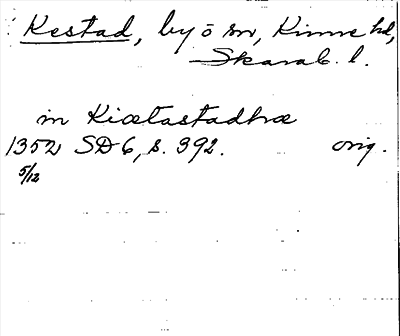 Kestad, by o sn, Kinne hd,
Skarab. l.
in Kiætastadhæ
1352 SD 6, s. 392. orig.
5/12